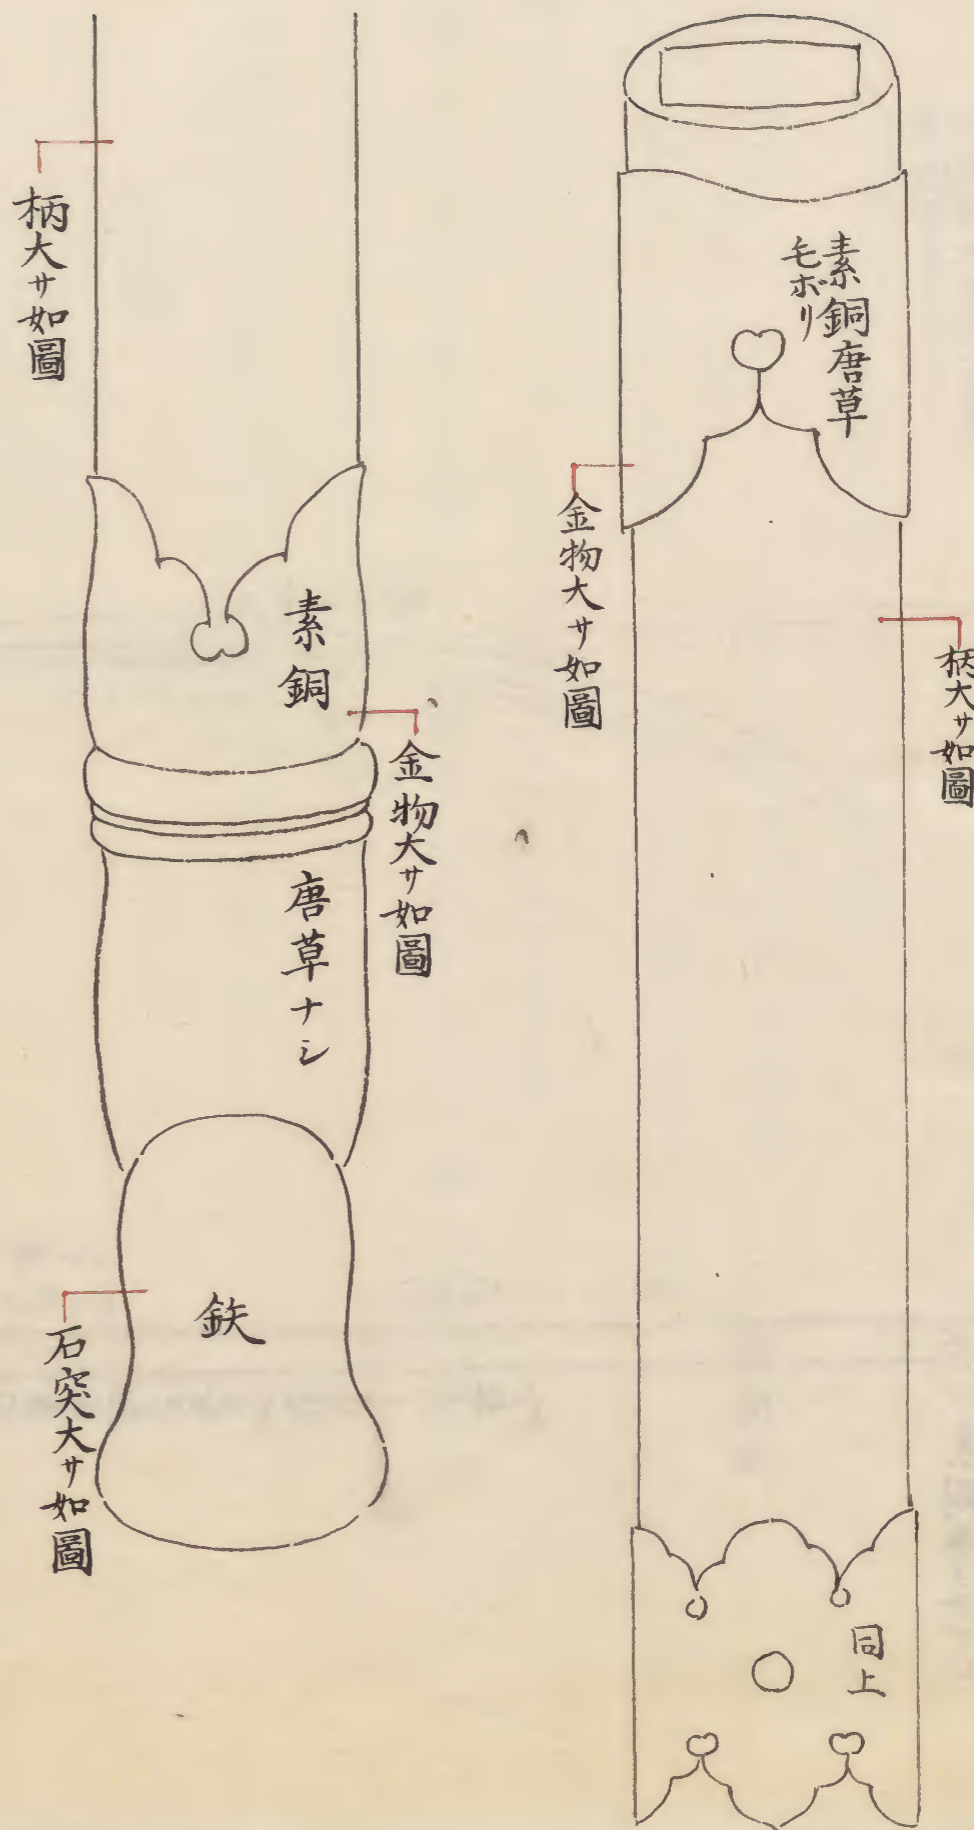 素銅唐草
毛ボリ
金物大サ如圖
柄大サ如圖
同上
柄大サ如圖
素銅
金物大サ如圖
唐草ナシ
鉄
石突大サ如圖